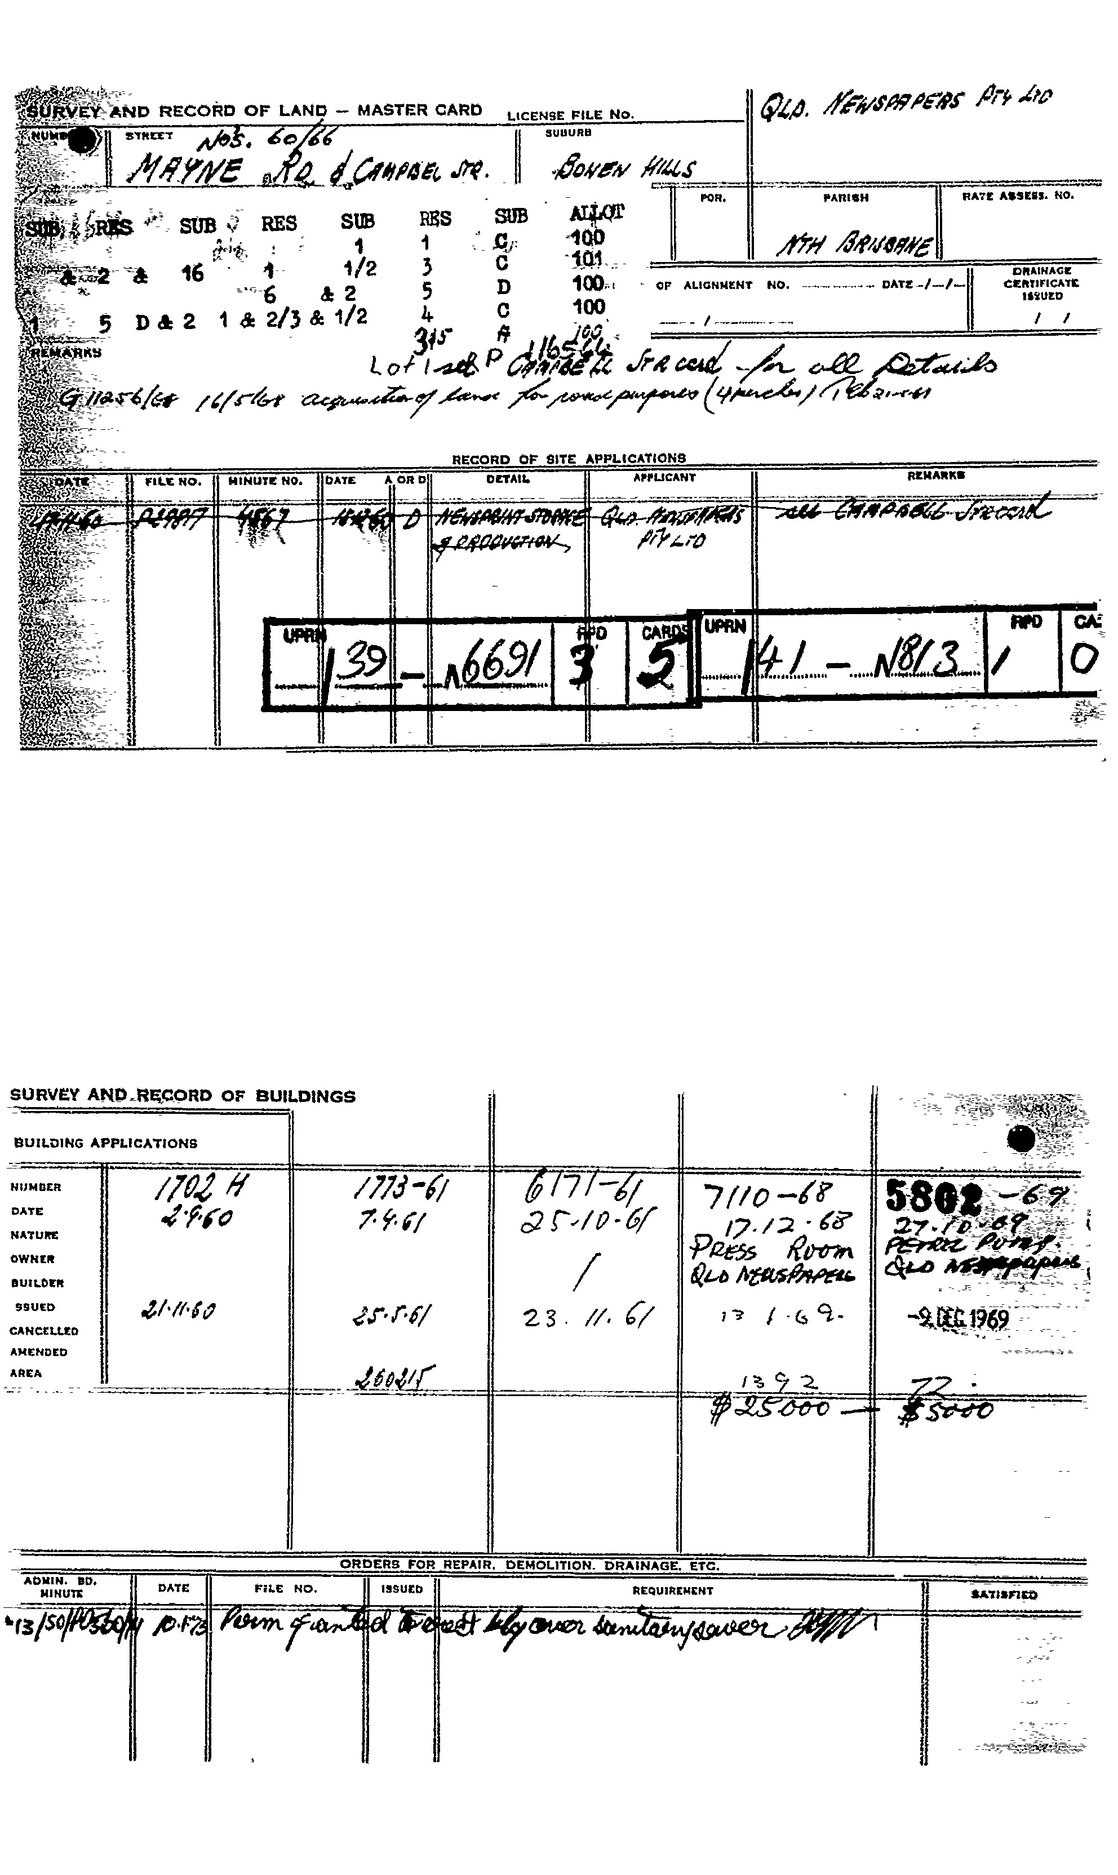 SURVEY AND RECORD OF LAND – MASTER CARD LICENSE FILE No. QLD. NEWSPAPERS PTY LTD
STREET NOS. 60/66 SUBURB
MAYNE RD & CAMPBEL STR. BOWEN HILLS
POR. PARISH RATE ASSESS. NO.
NTH BRISBANE
SUB RES SUB RES SUB RES SUB ALLOT
1 1 C 100
& 2 & 16 1 1/2 3 C 101
6 & 2 5 D 100
1 5 D & 2 1 & 2/3 & 1/2 4 C 100
A 100
OF ALIGNMENT NO. DATE -/-/- DRAINAGE CERTIFICATE ISSUED
/ / /
REMARKS
Lot 1 see P CAMPBELL STR card for all Details
G11256/68 16/5/68 acquisition of land for road purposes (4 perches)
RECORD OF SITE APPLICATIONS
DATE FILE NO. MINUTE NO. DATE A OR D DETAIL APPLICANT REMARKS
4567 D NEWSPRINT STORAGE QLD NEWSPAPERS see CAMPBELL STR card
& PRODUCTION PTY LTD
UPRN RPD CARDS UPRN RPD CA
139 – N6691 3 5 141 – N813 1 0
SURVEY AND RECORD OF BUILDINGS
BUILDING APPLICATIONS
NUMBER 1702 H 1773-61 6171-61 7110-68 5802-69
DATE 2.9.60 7.4.61 25.10.61 17.12.68 27.10.69
NATURE PRESS ROOM PETROL PUMP.
OWNER / QLD NEWSPAPERS QLD Newspapers
BUILDER
ISSUED 21.11.60 25.5.61 23.11.61 13 1.69. -9 DEC 1969
CANCELLED
AMENDED
AREA 260215 1392 72.
$25000 — $5000
ORDERS FOR REPAIR, DEMOLITION, DRAINAGE, ETC.
ADMIN. BD. MINUTE DATE FILE NO. ISSUED REQUIREMENT SATISFIED
Perm granted to erect bldg over sanitary sewer